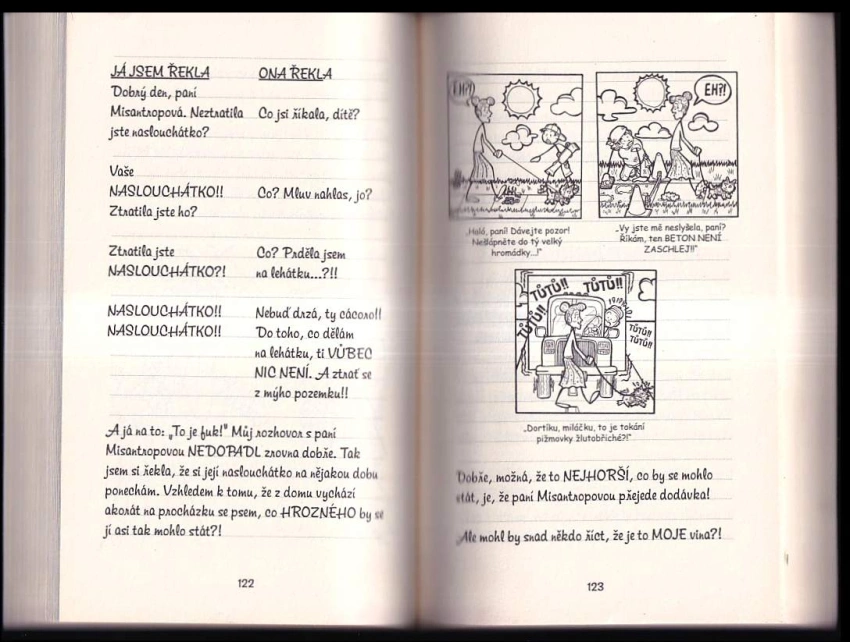 JÁ JSEM ŘEKLA ONA ŘEKLA
Dobrý den, paní
Misantropová. Neztratila Co jsi říkala, dítě?
jste naslouchátko?
Vaše
NASLOUCHÁTKO!! Co? Mluv nahlas, jo?
Ztratila jste ho?
Ztratila jste Co? Prděla jsem
NASLOUCHÁTKO?! na lehátku...?!!
NASLOUCHÁTKO!! Nebuď drzá, ty cácoro!!
NASLOUCHÁTKO!! Do toho, co dělám
na lehátku, ti VŮBEC
NIC NENÍ. A ztrať se
z mýho pozemku!!
A já na to: „To je fuk!" Můj rozhovor s paní
Misantropovou NEDOPADL zrovna dobře. Tak
jsem si řekla, že si její naslouchátko na nějakou dobu
ponechám. Vzhledem k tomu, že z domu vychází
akorát na procházku se psem, co HROZNÉHO by se
jí asi tak mohlo stát?!
122
EH?!
EH?!
„Haló, paní! Dávejte pozor!
Nešlápněte do tý velký
hromádky...!"
„Vy jste mě neslyšela, paní?
Říkám, ten BETON NENÍ
ZASCHLEJ!!"
TŮTŮ!! TŮTŮ!!
TŮTŮ!!
TŮTŮ!!
TŮTŮ!!
„Dortíku, miláčku, to je tokání
pižmovky žlutobřiché?!"
Dobře, možná, že to NEJHORŠÍ, co by se mohlo
stát, je, že paní Misantropovou přejede dodávka!
Ale mohl by snad někdo říct, že je to MOJE vina?!
123